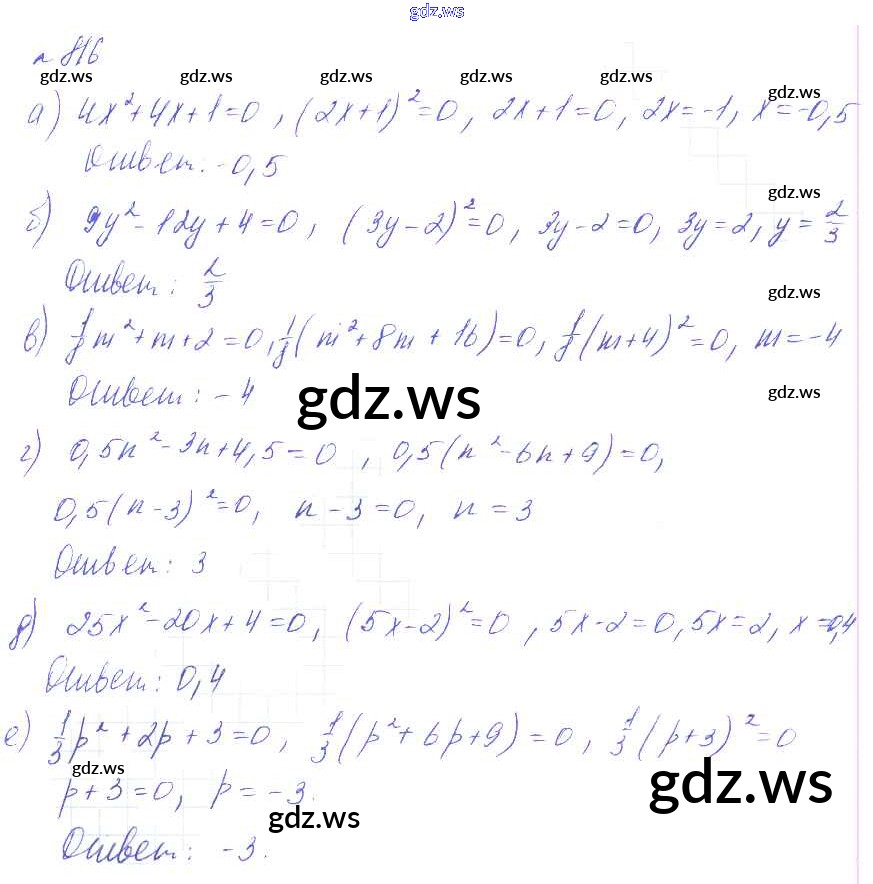 gdz.ws
№ 816
gdz.ws gdz.ws gdz.ws gdz.ws gdz.ws gdz.ws
а) 4x²+4x+1=0, (2x+1)²=0, 2x+1=0, 2x=-1, x=-0,5
Ответ: -0,5
gdz.ws
б) 9y²-12y+4=0, (3y-2)²=0, 3y-2=0, 3y=2, y=2/3
Ответ: 2/3
gdz.ws
в) 1/8m²+m+2=0, 1/8(m²+8m+16)=0, 1/8(m+4)²=0, m=-4
Ответ: -4
gdz.ws gdz.ws
г) 0,5n²-3n+4,5=0, 0,5(n²-6n+9)=0,
0,5(n-3)²=0, n-3=0, n=3
Ответ: 3
д) 25x²-20x+4=0, (5x-2)²=0, 5x-2=0, 5x=2, x=0,4
Ответ: 0,4
е) 1/3p²+2p+3=0, 1/3(p²+6p+9)=0, 1/3(p+3)²=0
gdz.ws gdz.ws
p+3=0, p=-3.
gdz.ws
Ответ: -3.